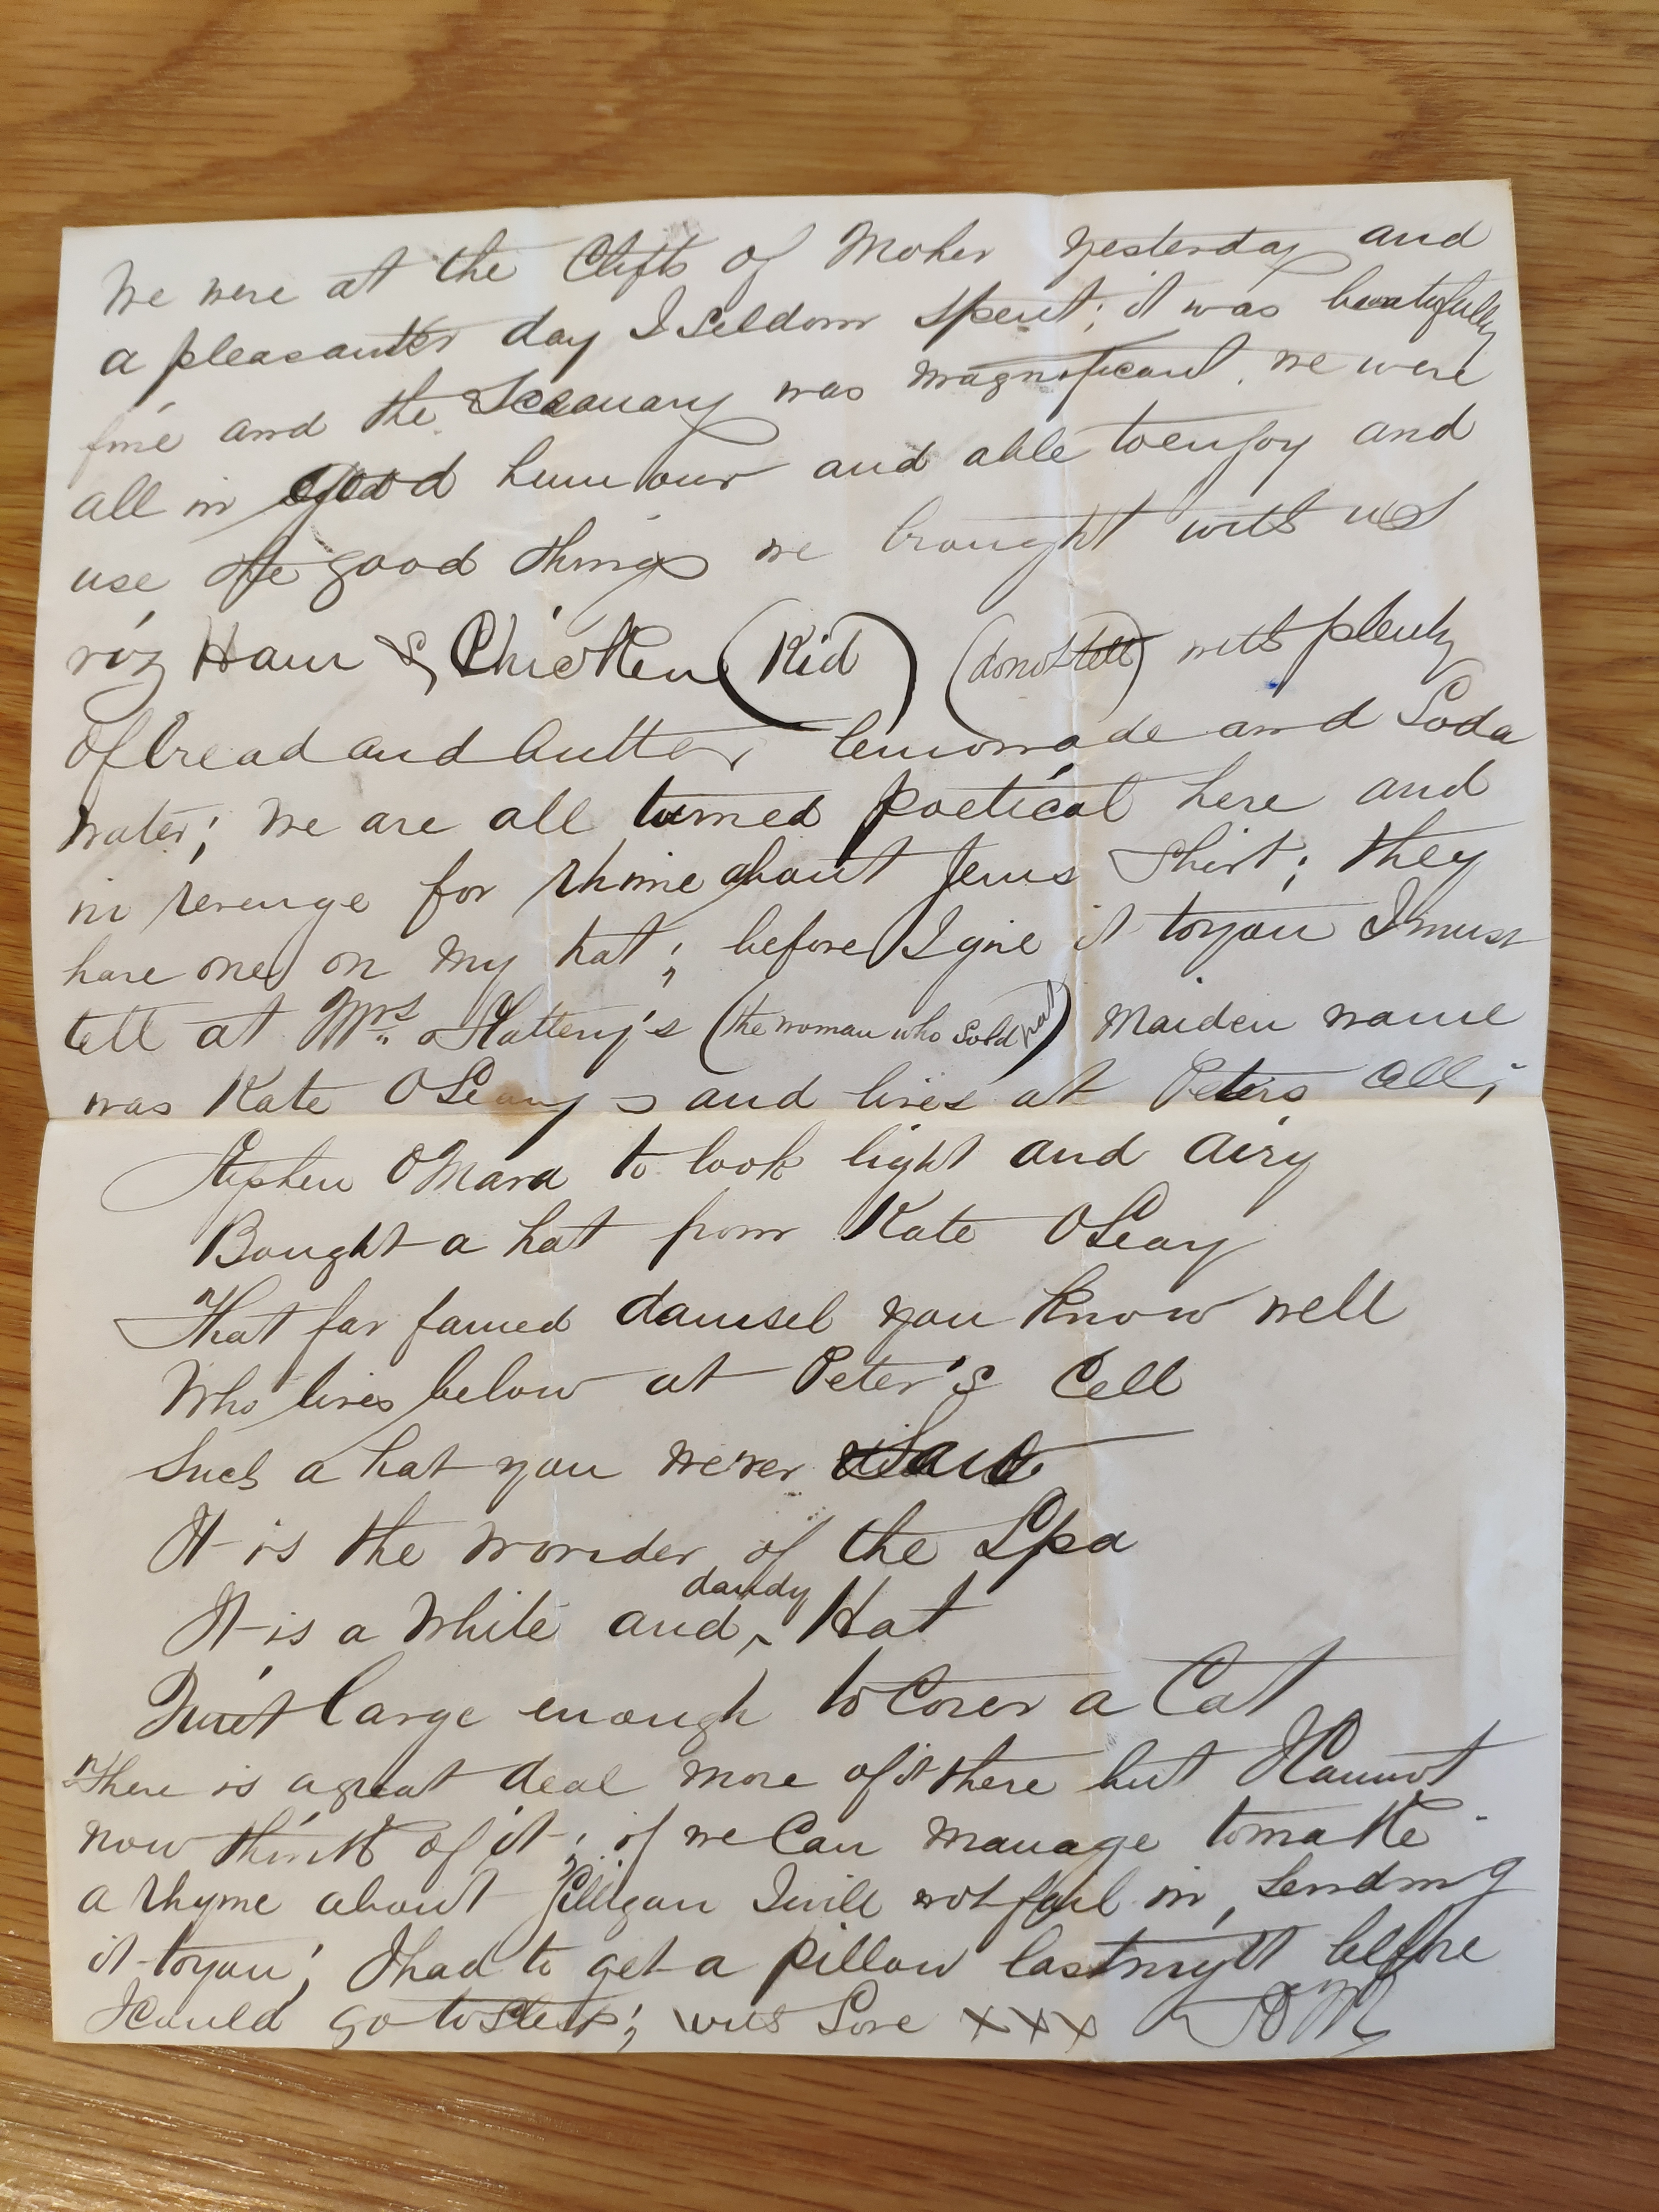 We were at the Clifts of Moher yesterday and
a pleasanter day I seldom spent; it was beautifully
fine and the Sceanary was magnificant. we were
all in good humour and able to enjoy and
use the good things we brought with us
viz Ham & Chicken (Kid) (donot tell) with plenty
of bread and butter, lemonade and Soda
Water; We are all turned poetical here and
in revenge for rhime about Jems Shirt; they
have one on my hat; before I give it to you I must
tell at Mrs. Slattery's (the woman who sold hat) Maiden name
was Kate OLeary and lives at Peters Cell;
Stephen OMara to look light and airy
Bought a hat from Kate OLeary
That far famed damsel you know well
Who lives below at Peter's Cell
Such a hat you never saw
It is the wonder of the Spa
It is a White and dandy Hat
Just large enough to Cover a Cat
There is a great deal more of it there but I Cannot
now think of it; if we Can manage to make
a rhyme about Gilligan I will not fail in sending
it to you; I had to get a pillow last night before
I Could go to Sleep; with Love xxx SOM